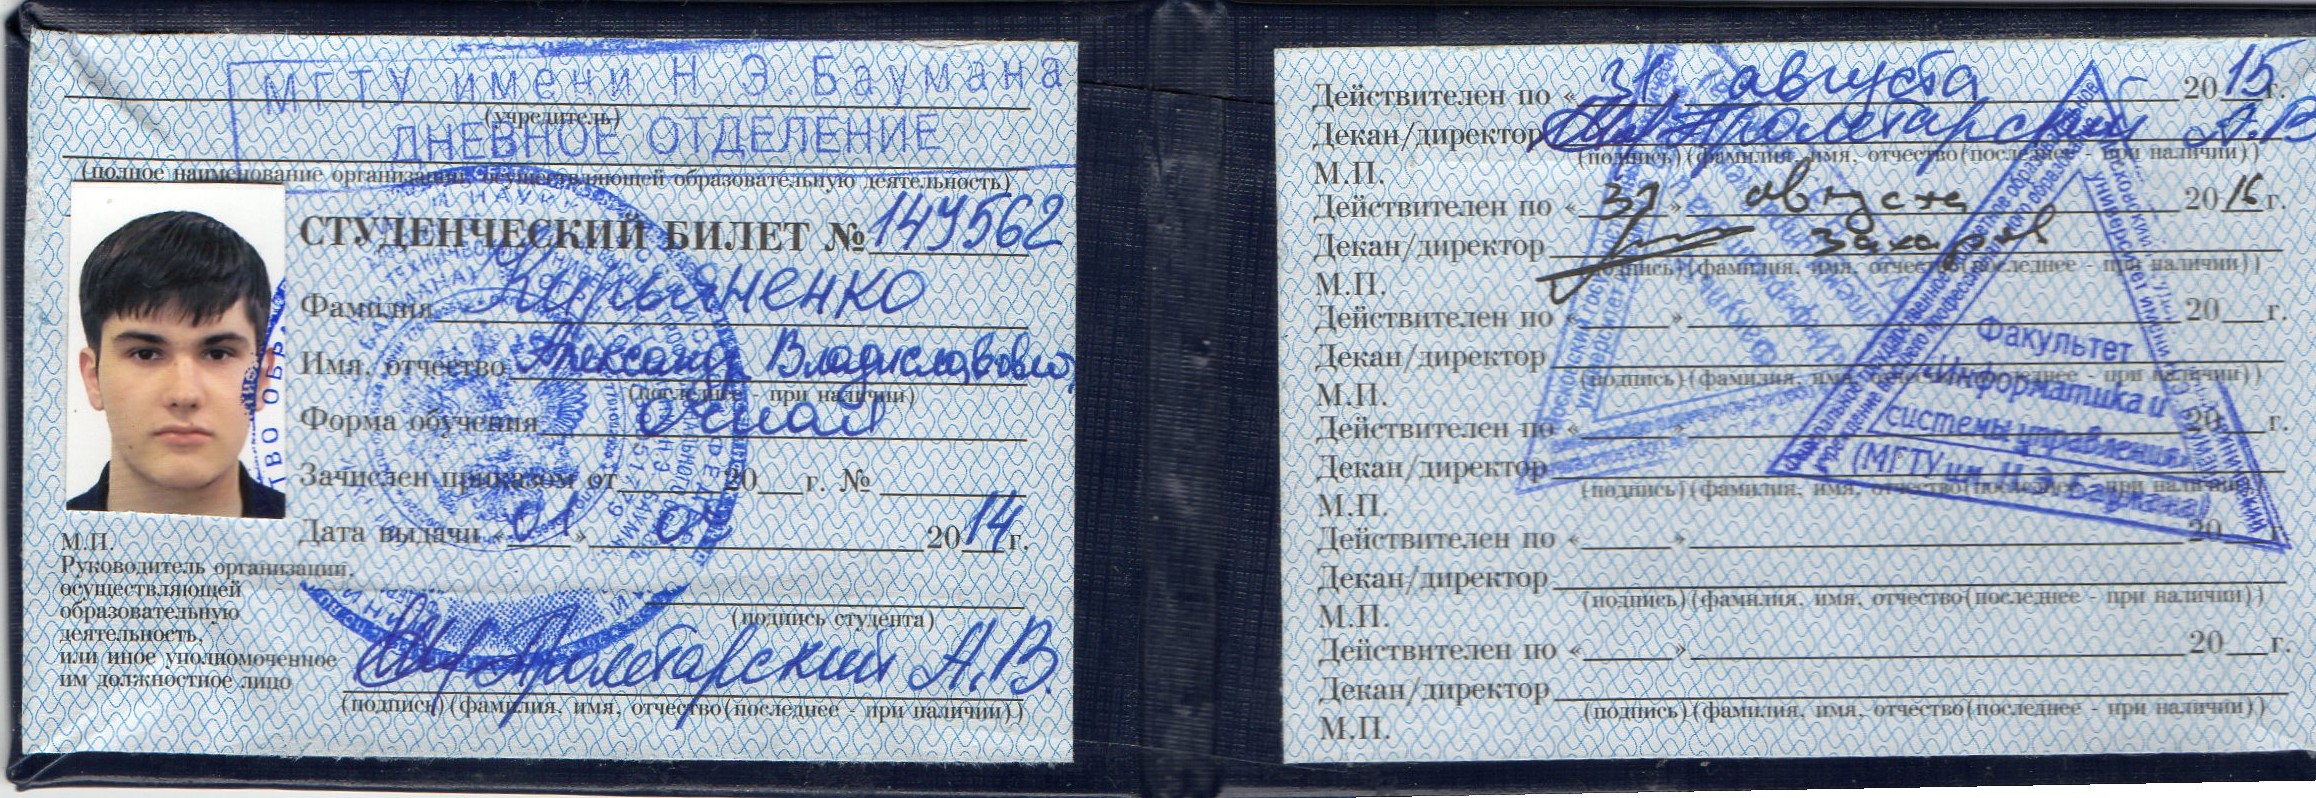 МГТУ имени Н.Э.Баумана
(учредитель)
ДНЕВНОЕ ОТДЕЛЕНИЕ
(полное наименование организации, осуществляющей образовательную деятельность)
СТУДЕНЧЕСКИЙ БИЛЕТ № 149562
Фамилия Кирьяненко
Имя, отчество Александр Владиславович
(последнее - при наличии)
Форма обучения очная
Зачислен приказом от 20 г. №
Дата выдачи «01» 2014 г.
М.П.
Руководитель организации,
осуществляющей
образовательную
деятельность,
или иное уполномоченное
им должностное лицо
(подпись студента)
Пролетарский А.В.
(подпись) (фамилия, имя, отчество(последнее - при наличии))
Действителен по «31» августа 2015 г.
Декан/директор Пролетарский А.В
(подпись) (фамилия, имя, отчество(последнее - при наличии))
М.П.
Действителен по «31» августа 2016 г.
Декан/директор Захаров
(подпись) (фамилия, имя, отчество(последнее - при наличии))
М.П.
Действителен по « » 20 г.
Декан/директор
(подпись) (фамилия, имя, отчество(последнее - при наличии))
М.П.
Действителен по « » 20 г.
Декан/директор
(подпись) (фамилия, имя, отчество(последнее - при наличии))
М.П.
Действителен по « » 20 г.
Декан/директор
(подпись) (фамилия, имя, отчество(последнее - при наличии))
М.П.
Действителен по « » 20 г.
Декан/директор
(подпись) (фамилия, имя, отчество(последнее - при наличии))
М.П.
Факультет
«Информатика и
системы управления»
(МГТУ им. Н.Э. Баумана)